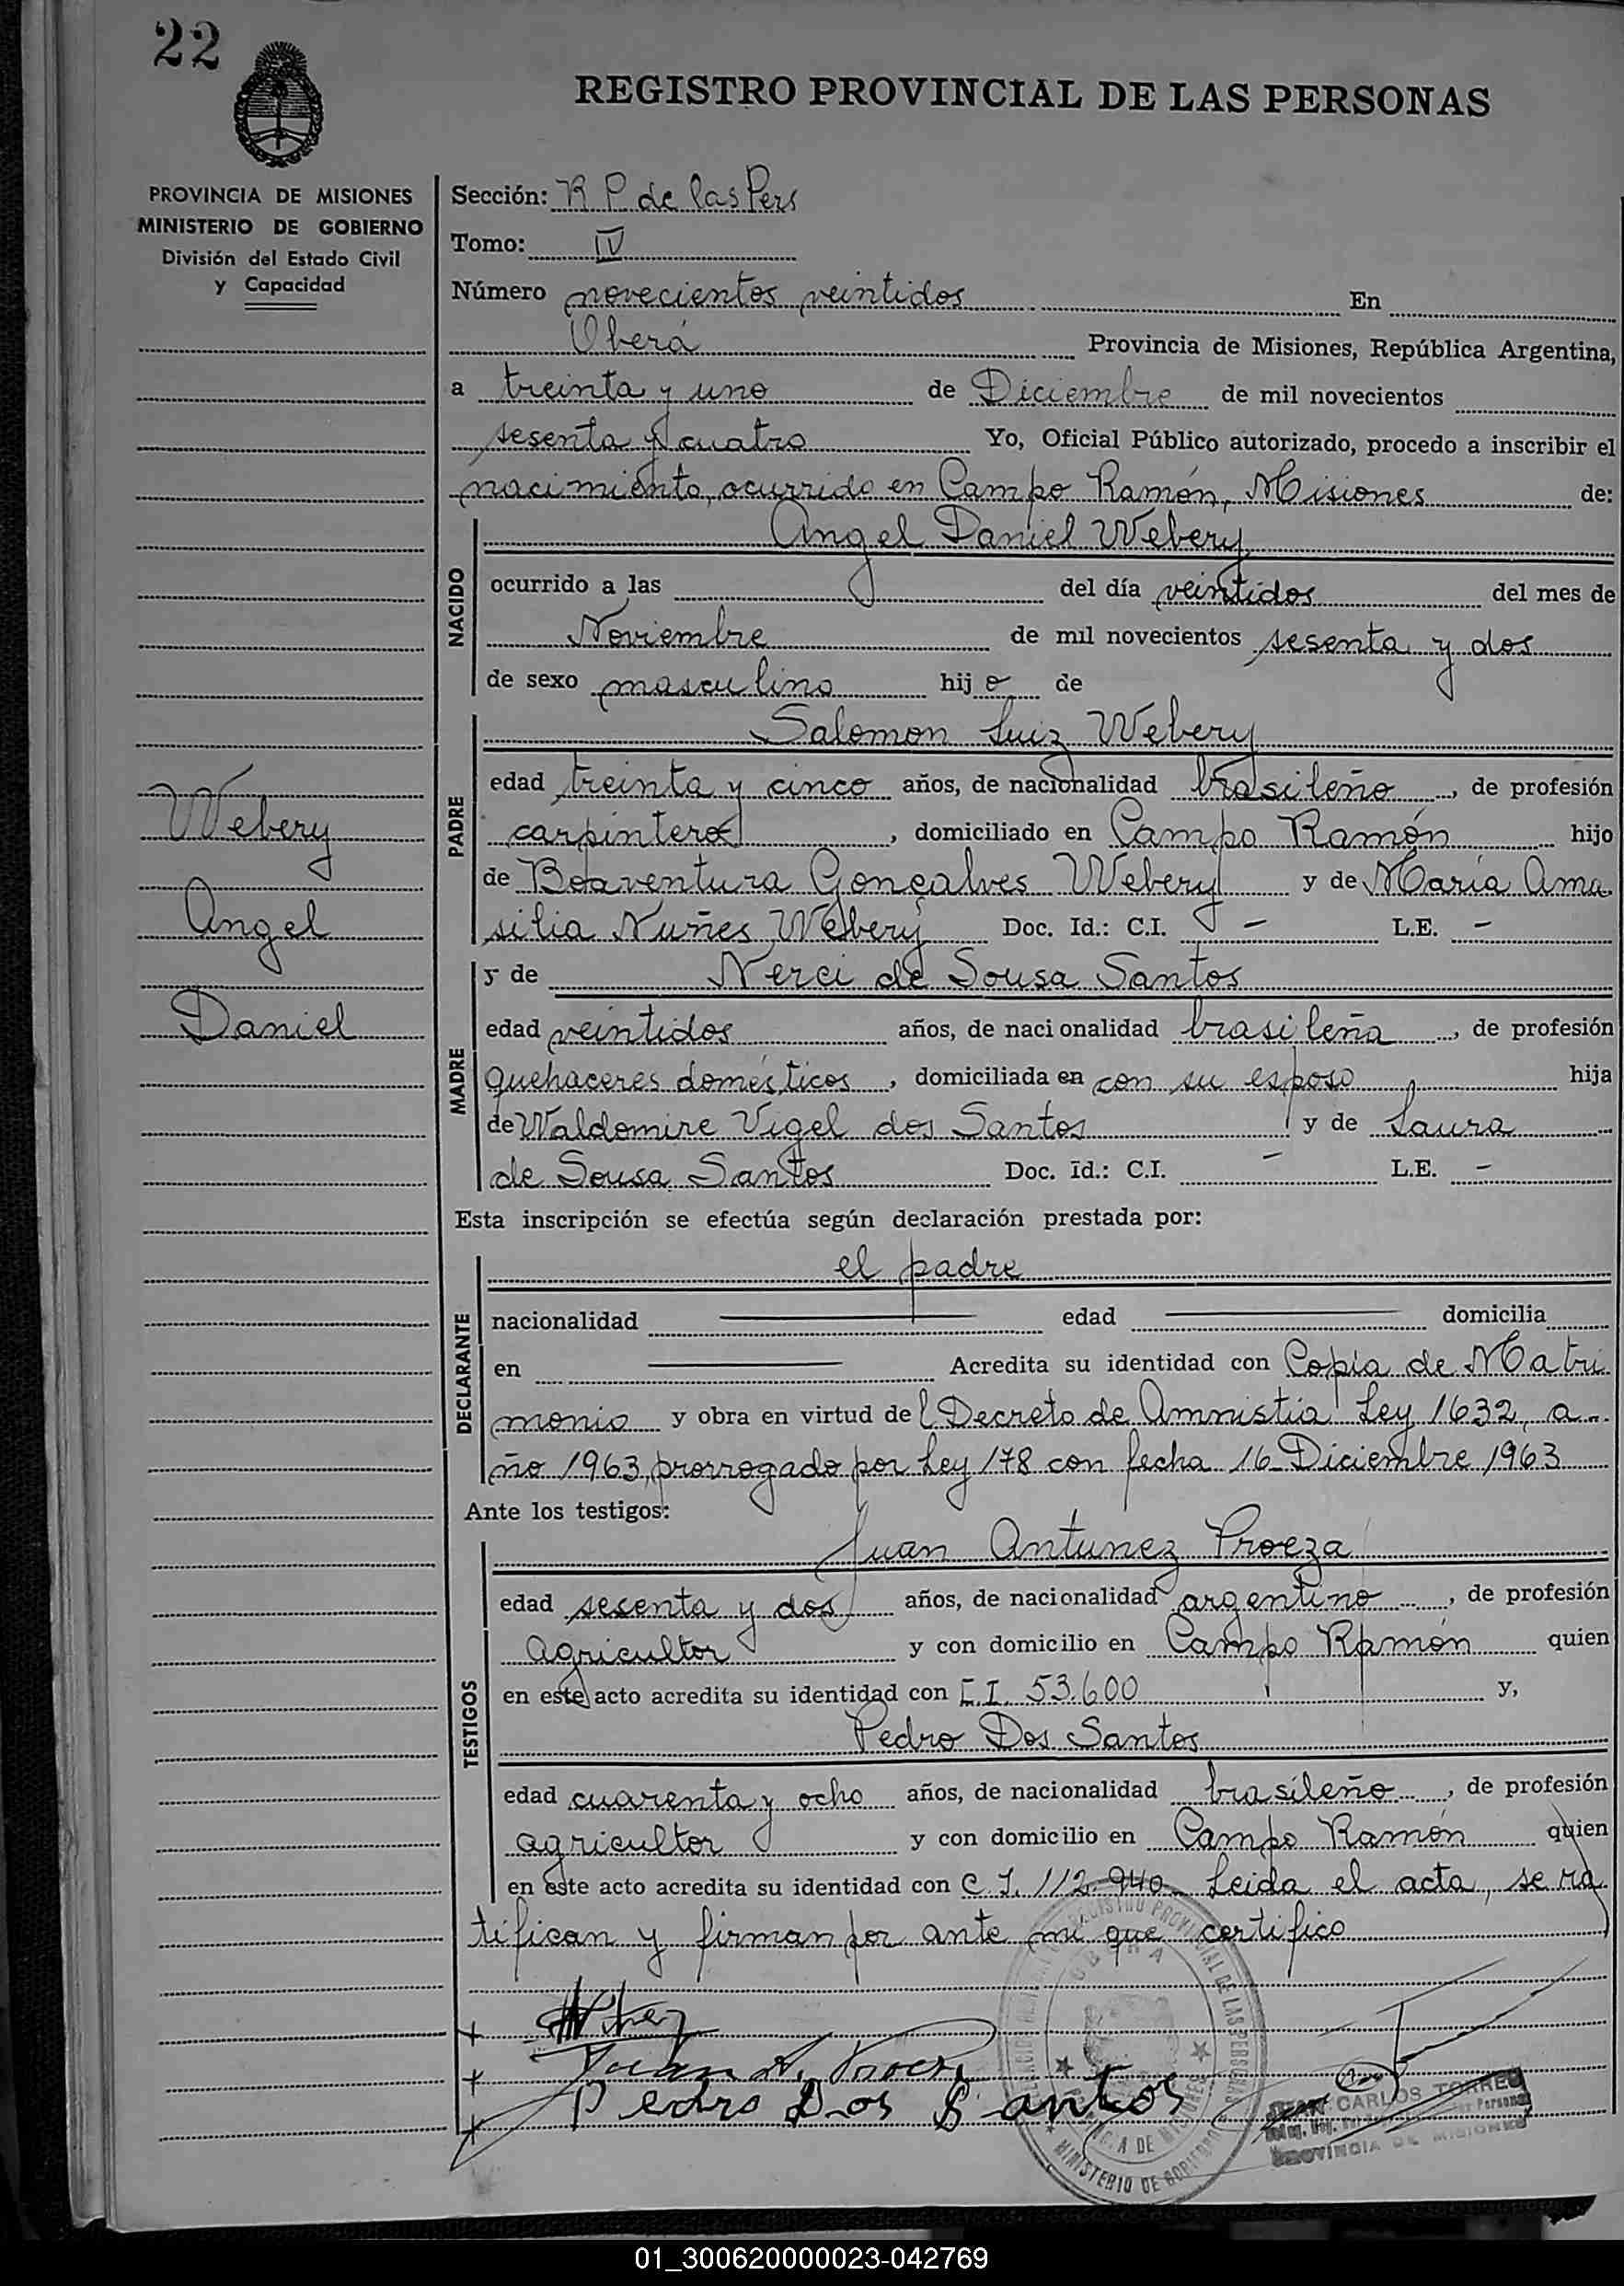 22
REGISTRO PROVINCIAL DE LAS PERSONAS
PROVINCIA DE MISIONES
MINISTERIO DE GOBIERNO
División del Estado Civil
y Capacidad
Sección: R P. de las Pers
Tomo: IV
Número novecientos veintidos En
Oberá Provincia de Misiones, República Argentina,
a treinta y uno de Diciembre de mil novecientos
sesenta y cuatro Yo, Oficial Público autorizado, procedo a inscribir el
nacimiento, ocurrido en Campo Ramón, Misiones de:
NACIDO
Angel Daniel Webery
ocurrido a las del día veintidos del mes de
Noviembre de mil novecientos sesenta y dos
de sexo masculino hijo de
PADRE
Salomon Luiz Webery
edad treinta y cinco años, de nacionalidad brasileño, de profesión
carpintero, domiciliado en Campo Ramón hijo
de Boaventura Gonçalves Webery y de María Ama
silia Nuñes Webery Doc. Id.: C.I. - L.E. -
Webery
Angel
Daniel
MADRE
y de Nerci de Sousa Santos
edad veintidos años, de nacionalidad brasileña, de profesión
quehaceres domésticos, domiciliada en con su esposo hija
de Waldomire Vigel dos Santos y de Laura
de Sousa Santos Doc. Id.: C.I. - L.E. -
Esta inscripción se efectúa según declaración prestada por:
DECLARANTE
el padre
nacionalidad edad domicilia
en Acredita su identidad con Copia de Matri
monio y obra en virtud del Decreto de Amnistia Ley 1632, a-
ño 1963, prorrogado por Ley 178 con fecha 16 Diciembre 1963
Ante los testigos:
TESTIGOS
Juan Antunez Proeza
edad sesenta y dos años, de nacionalidad argentino, de profesión
agricultor y con domicilio en Campo Ramón quien
en este acto acredita su identidad con C.I. 53.600 y,
Pedro Dos Santos
edad cuarenta y ocho años, de nacionalidad brasileño, de profesión
agricultor y con domicilio en Campo Ramón quien
en este acto acredita su identidad con C.I. 112.940. Leida el acta, se ra
tifican y firman por ante mi que certifico
Juan A. Proeza
Pedro Dos Santos
REGISTRO PROVINCIAL DE LAS PERSONAS
OBERA
MINISTERIO DE GOBIERNO
CARLOS TORRES
PROVINCIA DE MISIONES
01_300620000023-042769